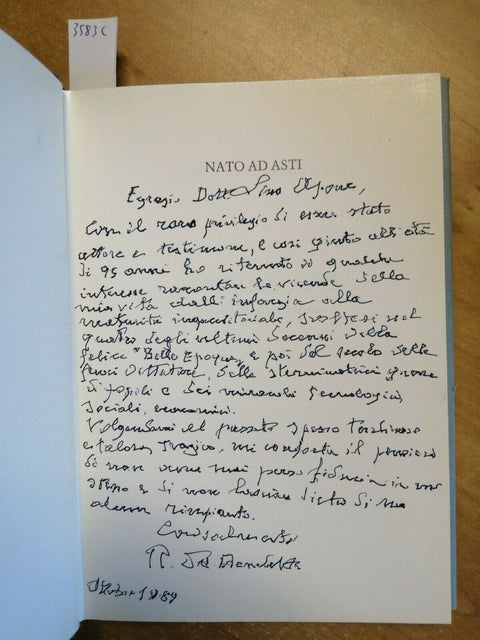 3583 C
NATO AD ASTI
Egregio Dott. Lino
Con il raro privilegio di esser stato
attore e testimone, e così giunto all'età
di 95 anni ho ritenuto di qualche
interesse raccontare le vicende della
mia vita dall'infanzia alla
maturità imprenditoriale, nel
quadro degli ultimi bocconi della
felice "Belle Epoque, e poi del secolo delle
feroci dittature, delle sterminatrici guerre
di popoli e dei miracoli tecnologici,
sociali, economici.
Volgendomi al passato spesso
e talora tragico, mi conforta il pensiero
di non aver mai perso fiducia in me
stesso e di non lasciare dietro di me
alcun rimpianto.
Cordialmente
Ottobre 1989